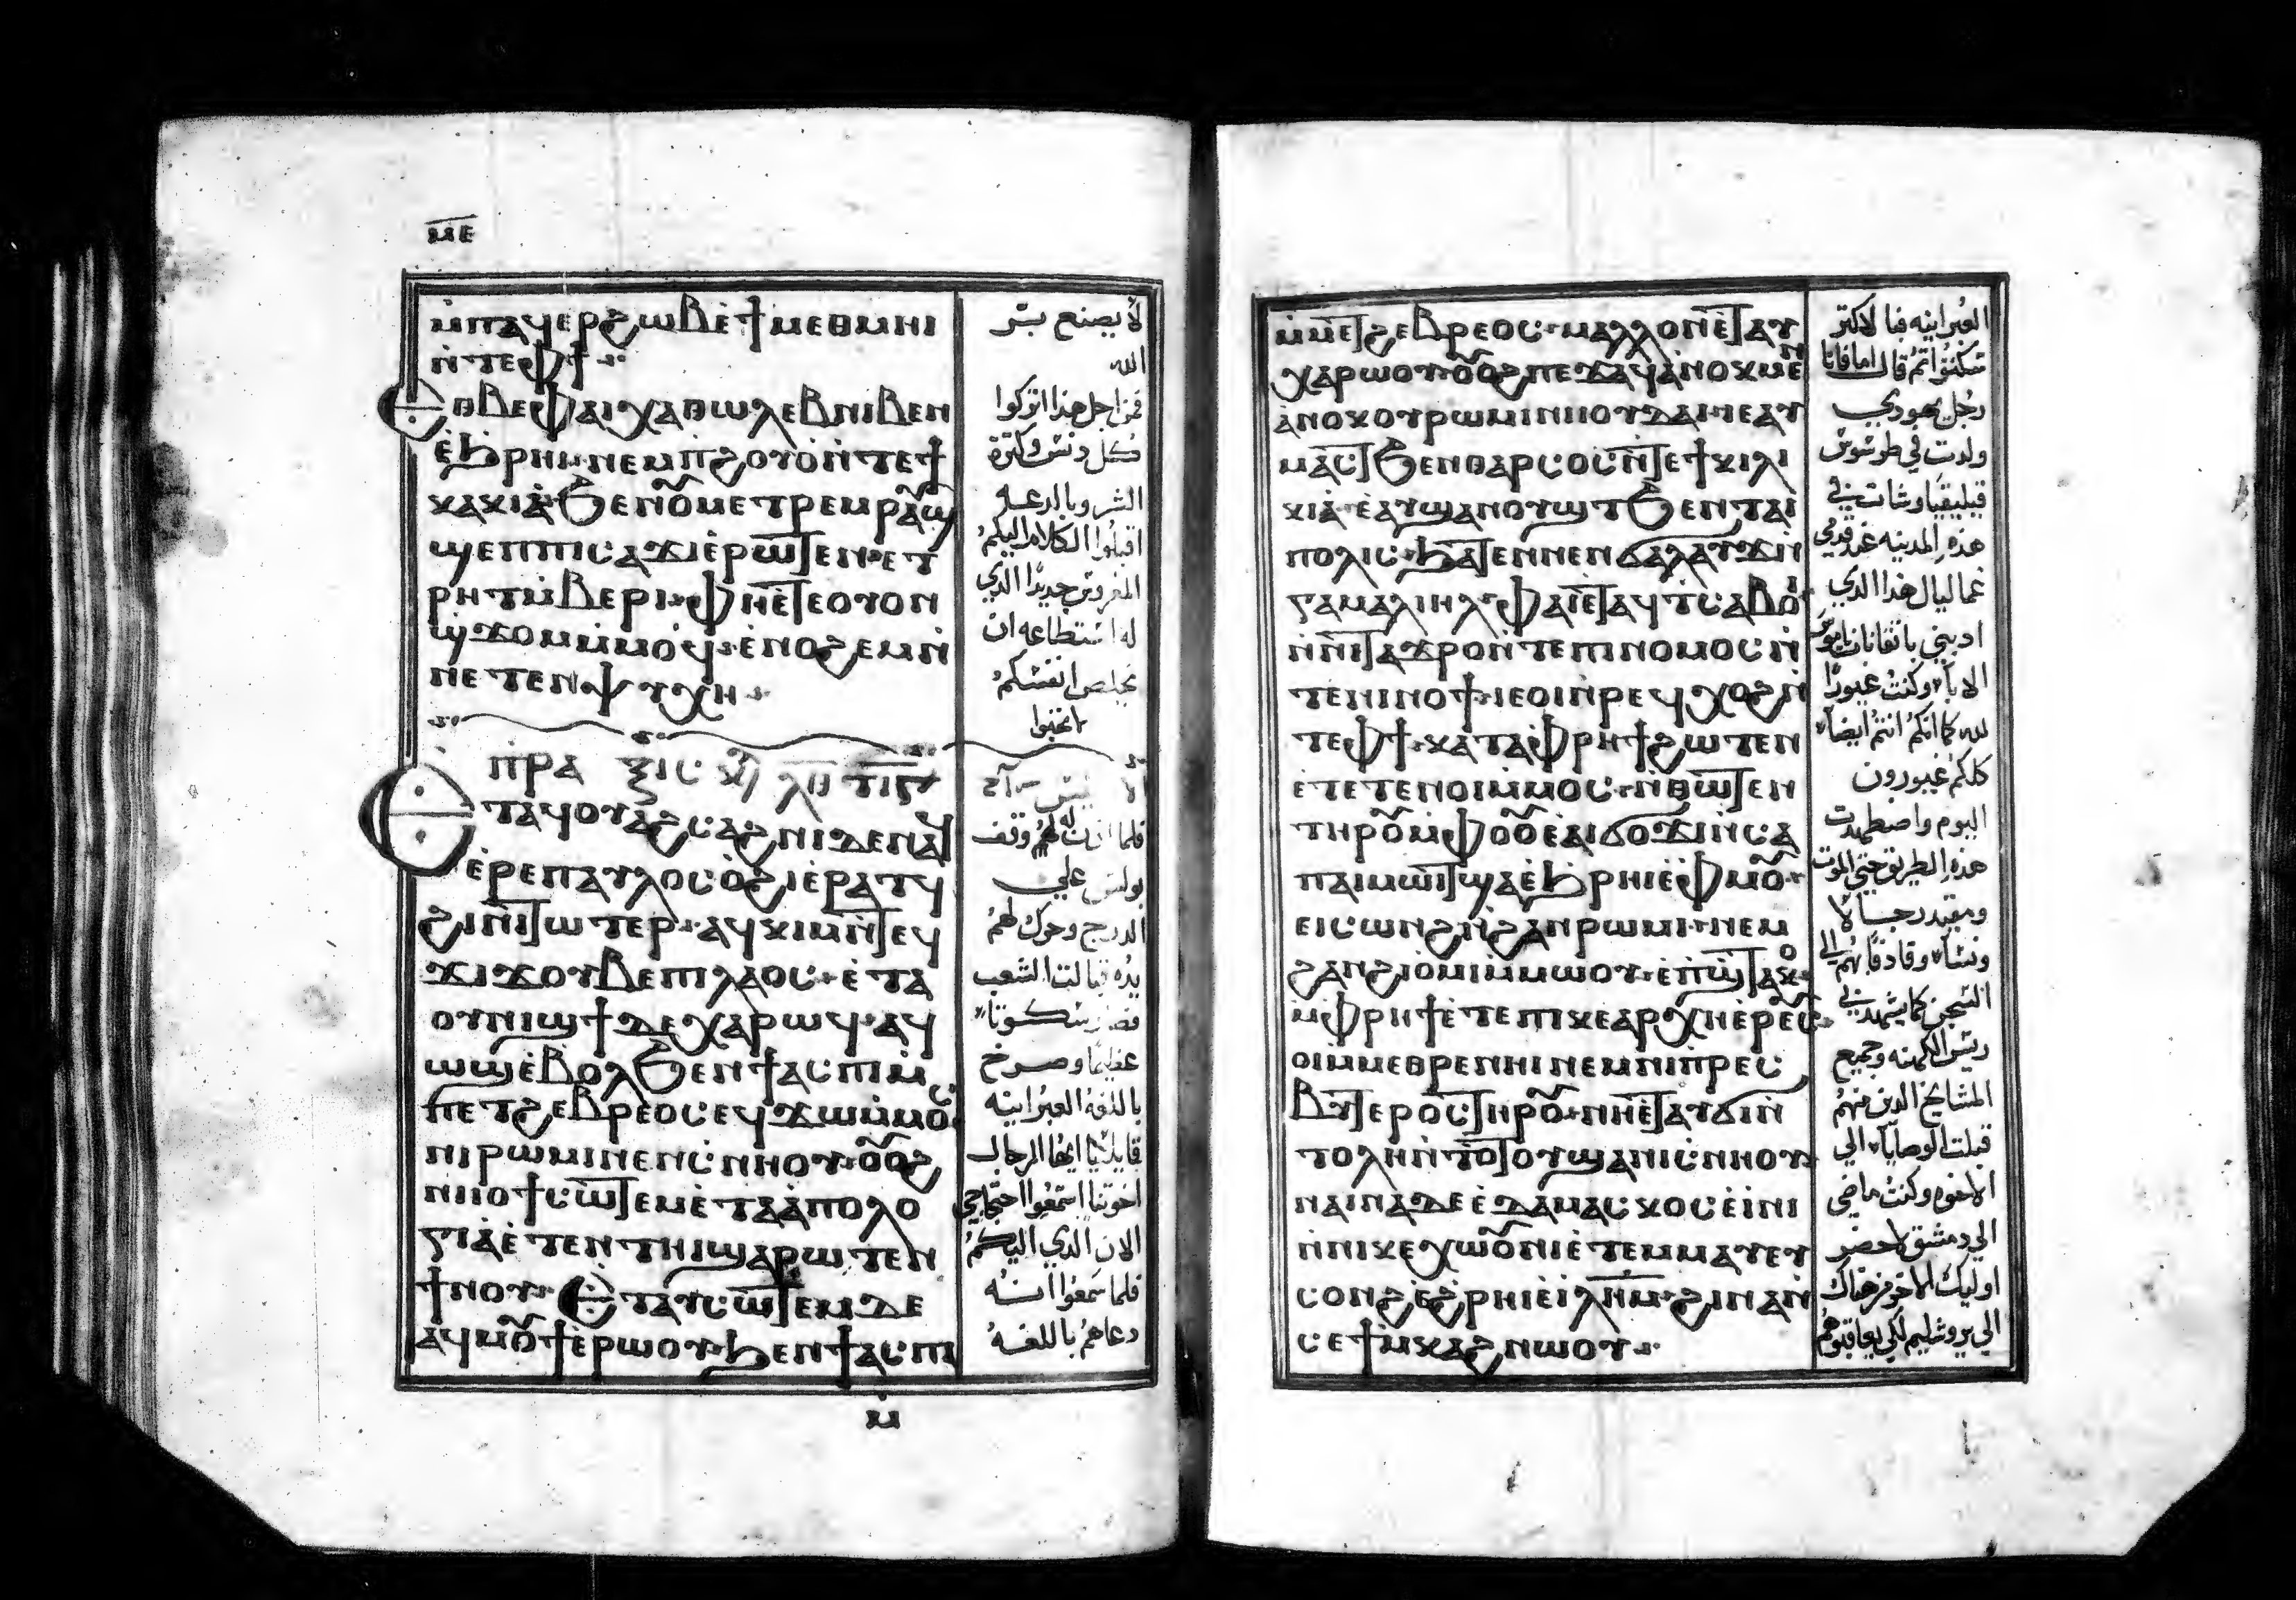 ⲙⲉ
ⲙ̀ⲡⲁϥⲉⲣϩⲱⲃ ⲉ̀ϯⲙⲉⲑⲙⲏⲓ
ⲛ̀ⲧⲉⲫϯ
ⲉⲑⲃⲉⲫⲁⲓ ⲭⲁ ⲑⲱⲗⲉⲃ ⲛⲓⲃⲉⲛ
ⲉ̀ϧⲣⲏⲓ ⲛⲉⲙ ⲡϩⲟⲩⲟ̀ ⲛ̀ⲧⲉϯ
ⲕⲁⲕⲓⲁ̀ ϧⲉⲛ ⲟⲩⲙⲉⲧⲣⲉⲙⲣⲁⲩϣ
ϣⲉⲡ ⲡⲓⲥⲁϫⲓ ⲉ̀ⲣⲱⲧⲉⲛ ⲉⲧ
ⲣⲏⲧ ⲙ̀ⲃⲉⲣⲓ ⲫⲏⲉ̀ⲧⲉⲟⲩⲟⲛ
ϣϫⲟⲙ ⲙ̀ⲙⲟϥ ⲉ̀ⲛⲟϩⲉⲙ ⲛ̀
ⲛⲉⲧⲉⲛⲯⲩⲭⲏ
ⲡⲣⲁ
ⲉⲧⲁϥⲟⲩⲁϩⲥⲁϩⲛⲓ ⲇⲉ ⲛⲁϥ
ⲉ̀ⲣⲉ ⲡⲁⲩⲗⲟⲥ ⲟ̀ϩⲓ ⲉ̀ⲣⲁⲧϥ
ϩⲓ ⲛⲓⲧⲱⲧⲉⲣ ⲁϥⲕⲓⲙ ⲛ̀ⲧⲉϥ
ϫⲓϫ ⲟⲩⲃⲉ ⲡⲓⲗⲁⲟⲥ ⲉ̀ⲧⲁ
ⲟⲩⲛⲓϣϯ ⲇⲉ ⲭⲁⲣⲱϥ ⲁϥ
ⲱϣ ⲉ̀ⲃⲟⲗ ϧⲉⲛ ϯⲁⲥⲡⲓ ⲙ̀
ⲙⲉⲧϩⲉⲃⲣⲉⲟⲥ ⲉϥϫⲱ ⲙ̀ⲙⲟⲥ
ⲛⲓⲣⲱⲙⲓ ⲛⲉⲛⲥⲛⲏⲟⲩ ⲟⲩⲟϩ
ⲛⲓⲓⲟϯ ⲥⲱⲧⲉⲙ ⲉ̀ⲧⲁⲁ̀ⲡⲟⲗⲟ
ⲅⲓⲁ̀ ⲉ̀ⲧⲉⲛⲧⲏⲓ ϣⲁⲣⲱⲧⲉⲛ
ϯⲛⲟⲩ ⲉⲧⲁⲩⲥⲱⲧⲉⲙ ⲇⲉ
ⲁϥⲙⲟⲩϯ ⲉ̀ⲣⲱⲟⲩ ϧⲉⲛ ϯⲁⲥⲡⲓ
ⲙ̀
لا يصنع بر
الله
فمن اجل هذا اتركوا
كل دنس وكثرة
الشر وبالدعه
اقبلوا الكلام اليكم
المغروس جديدًا الذي
له استطاعه ان
يخلص انفسكم
فلما اذن له وقف
بولس علي
الدرج وحرك لهم
يده قبالت الشعب
فصار سكوتا
عظيمًا وصرخ
باللغة العبرانيه
قايلًا ايها الرجال
اخوتنا استمعوا احتجاجي
الان الذي اليكم
فلما سمعوا انه
دعاهم باللغه
ⲙ̀ⲙⲉⲧϩⲉⲃⲣⲉⲟⲥ ⲙⲁⲗⲗⲟⲛ ⲉ̀ⲧⲁⲩ
ⲭⲁⲣⲱⲟⲩ ⲟⲩⲟϩ ⲡⲉϫⲁϥ ⲁ̀ⲛⲟⲕ ⲙⲉⲛ
ⲁ̀ⲛⲟⲕ ⲟⲩⲣⲱⲙⲓ ⲛⲓⲟⲩⲇⲁⲓ ⲛⲉⲁⲩ
ⲙⲁⲥⲧ ϧⲉⲛ ⲑⲁⲣⲥⲟⲥ ⲛ̀ⲧⲉ ϯⲕⲓⲗⲓ
ⲕⲓⲁ̀ ⲉ̀ⲁⲩϣⲁⲛⲟⲩϣⲧ ϧⲉⲛ ⲧⲁⲓ
ⲡⲟⲗⲓⲥ ϧⲁⲧⲉⲛ ⲛⲉⲛϭⲁⲗⲁⲩϫ ⲛ̀
ⲅⲁⲙⲁⲗⲓⲏⲗ ⲫⲁⲓ ⲉ̀ⲧⲁϥⲧⲥⲁⲃⲟⲓ
ⲛ̀ⲛⲓⲧⲁϫⲣⲟ ⲛ̀ⲧⲉ ⲡⲓⲛⲟⲙⲟⲥ ⲛ̀
ⲧⲉ ⲛⲓⲛⲟϯ ⲓⲉ ⲟⲓ ⲛ̀ⲣⲉϥⲭⲟϩ ⲛ̀
ⲧⲉⲫϯ ⲕⲁⲧⲁⲫⲣⲏϯ ϩⲱⲧⲉⲛ
ⲉ̀ⲧⲉⲧⲉⲛⲟⲓ ⲙ̀ⲙⲟⲥ ⲛ̀ⲑⲱⲧⲉⲛ
ⲧⲏⲣⲟⲩ ⲙ̀ⲫⲟⲟⲩ ⲉ̀ⲁⲓϭⲟϫⲓ ⲛ̀ⲥⲁ
ⲡⲁⲓⲙⲱⲓⲧ ϣⲁ ⲉ̀ϧⲣⲏⲓ ⲉ̀ⲫⲙⲟⲩ
ⲉⲓⲥⲱⲛϩ ⲛ̀ϩⲁⲛⲣⲱⲙⲓ ⲛⲉⲙ
ϩⲁⲛϩⲓⲟ̀ⲙⲓ ⲙ̀ⲙⲱⲟⲩ ⲉ̀ⲡϣⲧⲁⲕⲟ
ⲙ̀ⲫⲣⲏϯ ⲉ̀ⲧⲉ ⲡⲓⲕⲉⲁⲣⲭⲏⲉ̀ⲣⲉⲩⲥ
ⲟⲓ ⲙ̀ⲙⲉⲑⲣⲉ ⲛⲏⲓ ⲛⲉⲙ ⲛⲓⲡⲣⲉⲥ
ⲃⲩⲧⲉⲣⲟⲥ ⲧⲏⲣⲟⲩ ⲛⲏⲉ̀ⲧⲁⲩϭⲓ ⲛ̀
ⲧⲟⲗⲏ ⲛ̀ⲧⲟⲧⲟⲩ ϣⲁ ⲛⲓⲥⲛⲏⲟⲩ
ⲛⲁⲓⲛⲁ ⲇⲉ ⲉ̀ⲇⲁⲙⲁⲥⲕⲟⲥ ⲉ̀ⲓⲛⲓ
ⲛ̀ⲛⲓⲕⲉⲭⲱⲟⲩⲛⲓ ⲉ̀ⲧⲉⲙⲙⲁⲩ ⲉⲩ
ⲥⲟⲛϩ ⲉ̀ϩⲣⲏⲓ ⲉ̀ⲓⲗⲏⲙ ϩⲓⲛⲁ ⲛ̀
ⲥⲉϯⲙⲕⲁϩ ⲛⲱⲟⲩ
العبرانيه فبالاكثر
سكتوا ثم قال اما فانا
رجل يهودي
ولدت في طرسوس
قيليقيا ونشات في
هذه المدينه عند قدمي
غماليال هذا الذي
ادبني باتقانات ناموس
الاباء وكنت غيورًا
لله كما انكم انتم ايضًا
كلكم غيورون
اليوم واضطهدت
هذه الطريق حتي الموت
ومقيد رجالا
ونساء وقادفا بهم الي
السجن كما يشهد لي
ريس الكهنه وجميع
المشايخ الذين منهم
قبلت الوصايا الي
الاخوه وكنت ماضي
الي دمشق لاحضر
اوليك الاخر من هناك
الي يروشليم لكي يعاقبوهم